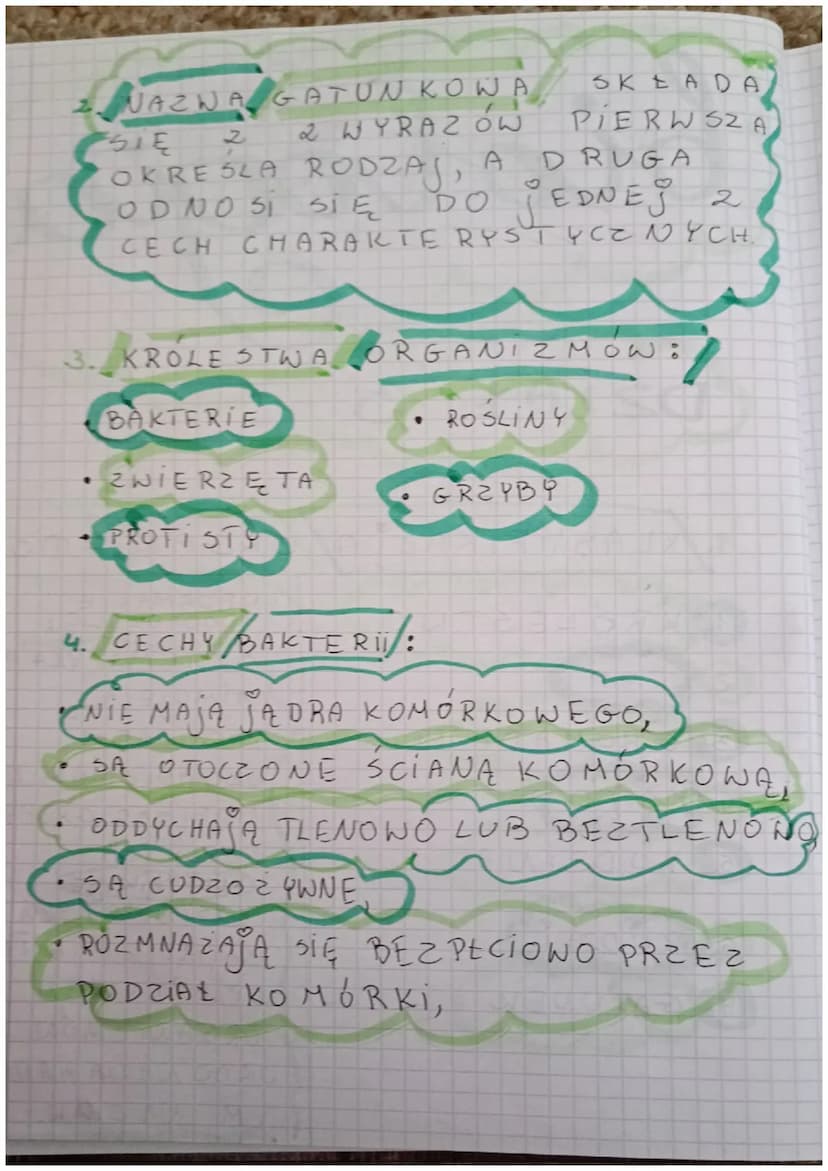 2. NAZWA GATUNKOWA SKŁADA
SIĘ Z 2 WYRAZÓW PIERWSZA
OKREŚLA RODZAJ, A DRUGA
ODNOSI SIĘ DO JEDNEJ Z
CECH CHARAKTERYSTYCZNYCH.
3. KRÓLESTWA ORGANIZMÓW:
• BAKTERIE
• ZWIERZĘTA
• PROTISTY
• ROŚLINY
• GRZYBY
4. CECHY BAKTERII:
• NIE MAJĄ JĄDRA KOMÓRKOWEGO,
• SĄ OTOCZONE ŚCIANĄ KOMÓRKOWĄ,
• ODDYCHAJĄ TLENOWO LUB BEZTLENOWO
• SĄ CUDZOŻYWNE,
• ROZMNAŻAJĄ SIĘ BEZPŁCIOWO PRZEZ
PODZIAŁ KOMÓRKI,